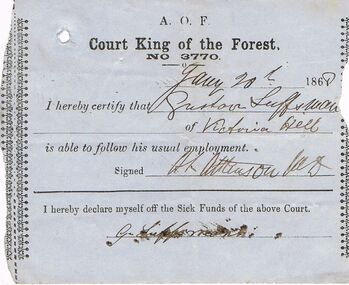 A. O. F.
Court King of the Forest.
NO 3770.
Jany 20th 1868
I hereby certify that Gustav
of Victoria Hill
is able to follow his usual employment.
Signed
I hereby declare myself off the Sick Funds of the above Court.